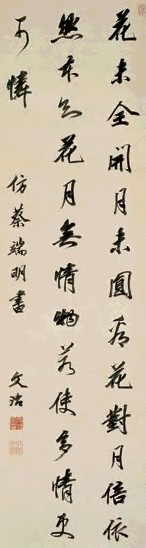 花未全開月未圓看花對月倍依
然不知花月無情物若使多情更
可憐
仿蔡端明書
文治